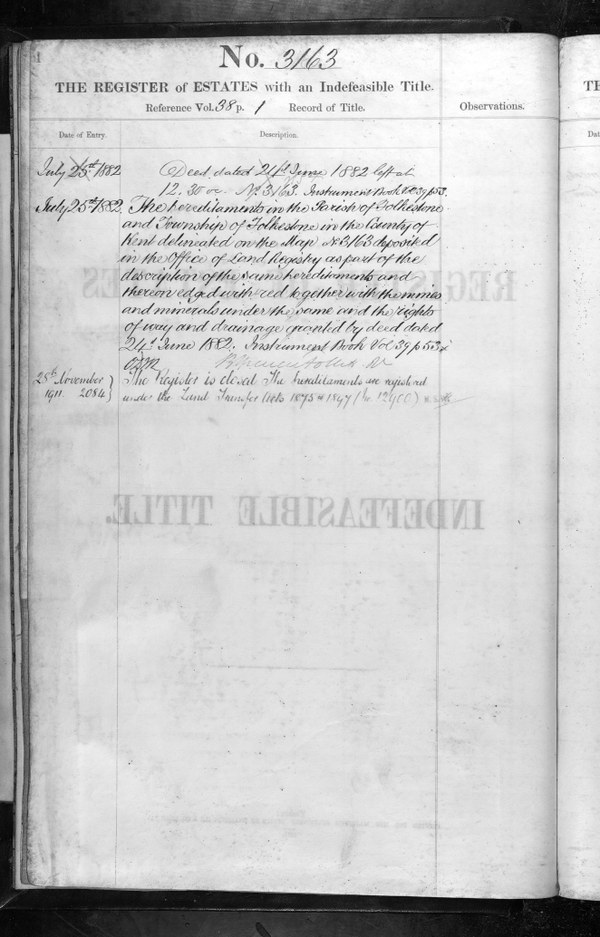 1
No. 3163
THE REGISTER of ESTATES with an Indefeasible Title.
Reference Vol. 38 p. 1 Record of Title.
Observations.
Date of Entry.
Description.
July 25th 1882
Deed dated 24th June 1882 left at
12.30 oc. No. 3163. Instrument Book Vol 39 p 53.
July 25th 1882.
The hereditaments in the Parish of Folkestone
and Township of Folkestone in the County of
Kent delineated on the Map No 3163 deposited
in the Office of Land Registry as part of the
description of the same hereditaments and
thereon edged with red together with the mines
and minerals under the same and the rights
of way and drainage granted by deed dated
24th June 1882. Instrument Book Vol 39 p 53
28th November
1911. 2084
The Register is closed. The hereditaments are registered
under the Land Transfer Acts 1875 & 1897
REGISTER of ESTATES
INDEFEASIBLE TITLE.
TH
Dat